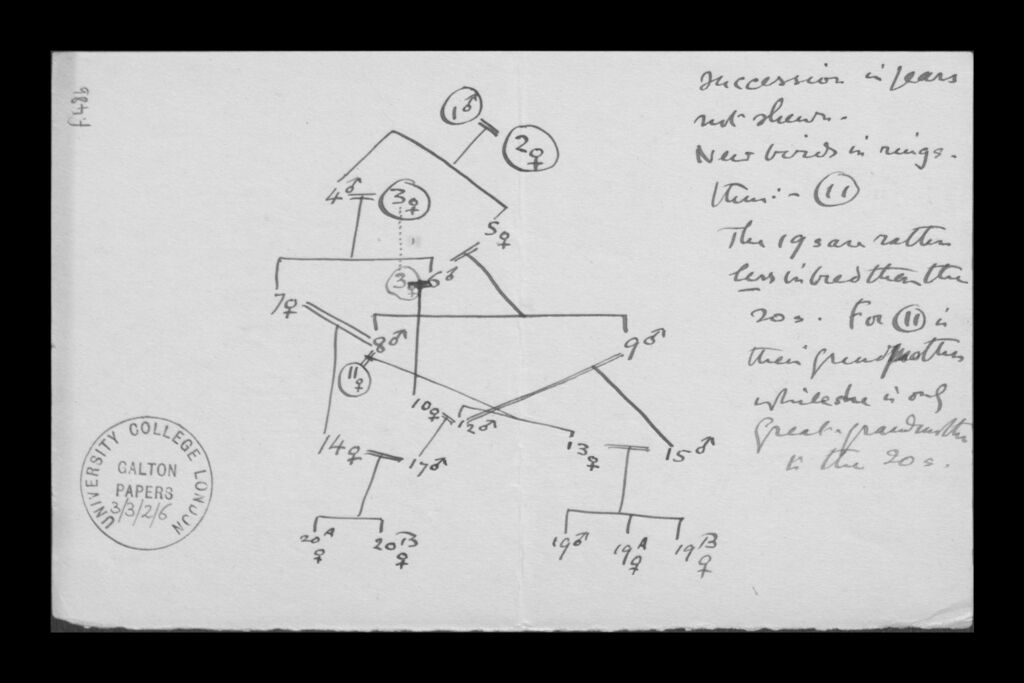 f.48b
succession in years
not shewn.
New birds in rings.
thus:- (11)
The 19s are rather
less inbred than the
20s. For (11) is
their grandmother
while she is only
Great-grandmother
to the 20s.
1♂
2♀
4♂ 3♀
5♀
3♀ 6♂
7♀
8♂ 9♂
11♀
10♀ 12♂
13♀ 15♂
14♀ 17♂
20A♀ 20B♀ 19♂ 19A♀ 19B♀
UNIVERSITY COLLEGE LONDON
GALTON
PAPERS
3/3/2/6